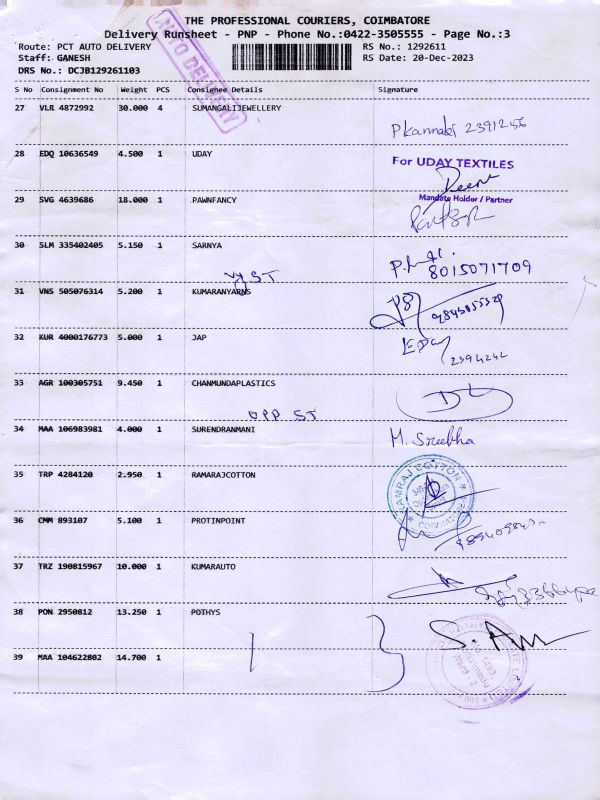 THE PROFESSIONAL COURIERS, COIMBATORE
Delivery Runsheet - PNP - Phone No.:0422-3505555 - Page No.:3
Route: PCT AUTO DELIVERY RS No.: 1292611
Staff: GANESH RS Date: 20-Dec-2023
DRS No.: DCJB129261103
AUTO DELIVERY
S No Consignment No Weight PCS Consignee Details Signature
27 VLR 4872992 30.000 4 SUMANGALIJEWELLERY
Pkannaki 2391256
28 EDQ 10636549 4.500 1 UDAY
For UDAY TEXTILES
Mandate Holder / Partner
29 SVG 4639686 18.000 1 PAWNFANCY
30 SLM 335402405 5.150 1 SARNYA
8015071709
31 VNS 505076314 5.200 1 KUMARANYARNS
32 KUR 4000176773 5.000 1 JAP
2394242
33 AGR 100305751 9.450 1 CHANMUNDAPLASTICS
OPP ST
34 MAA 106983981 4.000 1 SURENDRANMANI
M. Sreebha
35 TRP 4284120 2.950 1 RAMARAJCOTTON
RAMRAJ COTTON
36 CMM 893107 5.100 1 PROTINPOINT
37 TRZ 190815967 10.000 1 KUMARAUTO
38 PON 2950812 13.250 1 POTHYS
39 MAA 104622802 14.700 1